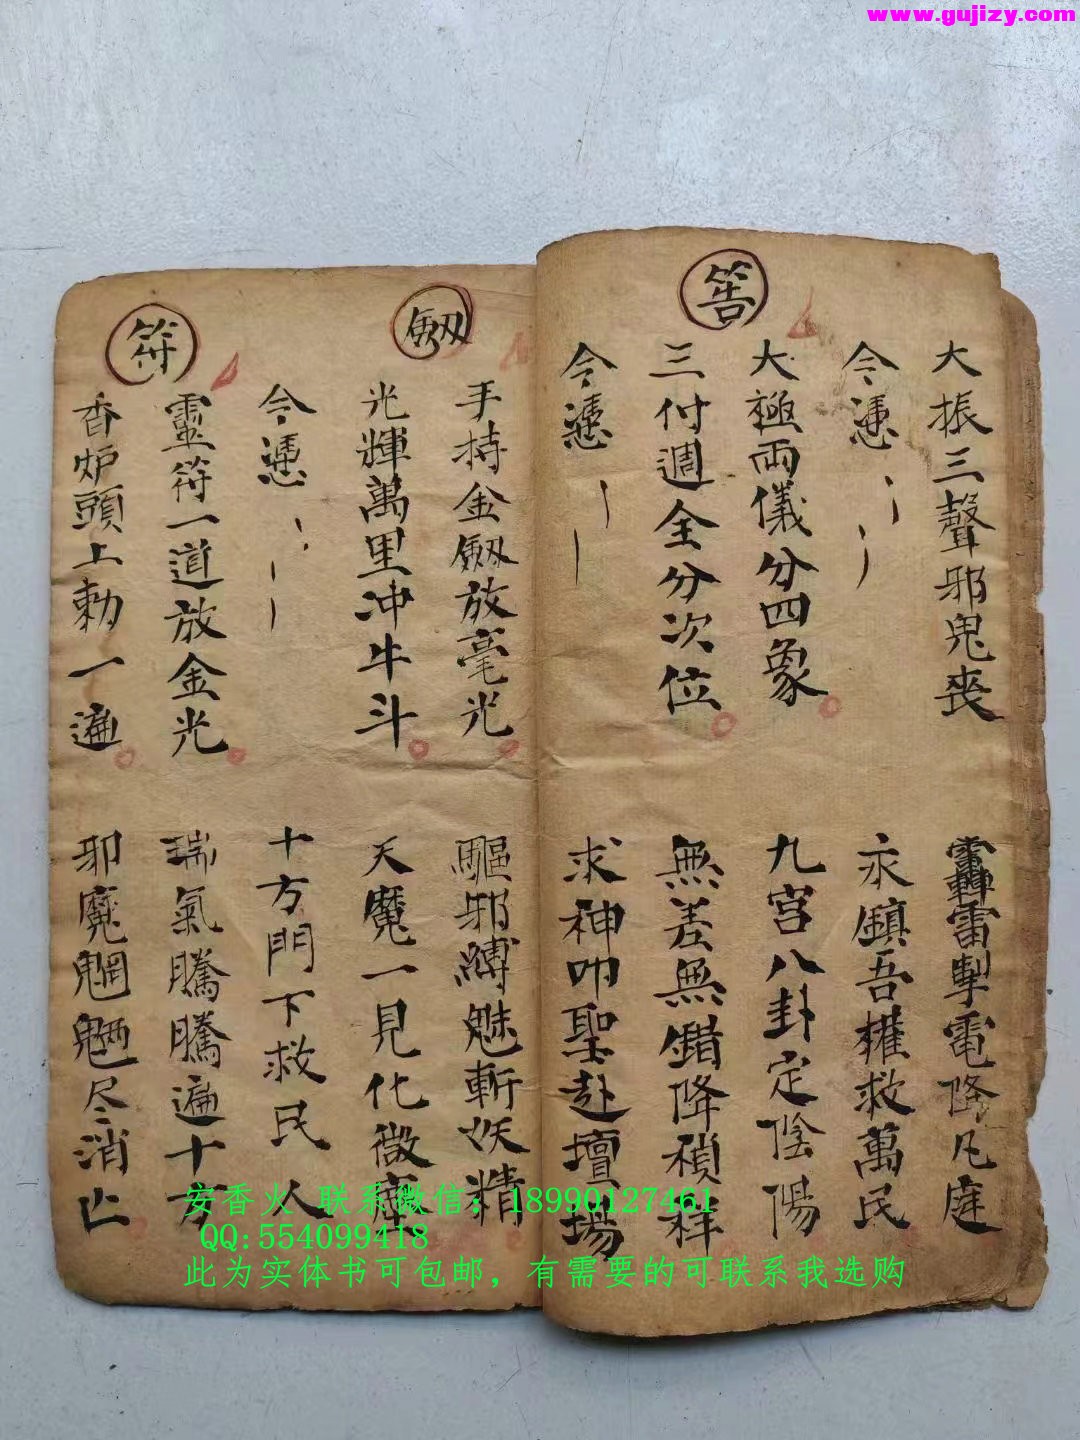 www.gujizy.com
大振三聲邪鬼丧
轟雷掣電降凡庭
今凴
永鎮吾權救萬民
筶
大極両儀分四象
九宫八卦定陰陽
三付週全分次位
無差無錯降禎祥
今凴
求神叩聖赴壇場
劔
手持金劔放毫光
驅邪縛魅斬妖精
光輝萬里冲牛斗
天魔一見化微塵
今凴
十方門下救民人
符
靈符一道放金光
瑞氣騰騰遍十方
香炉頭上勅一遍
邪魔魍魎尽消亡
安香火 联系微信：18990127461
QQ:554099418
此为实体书可包邮，有需要的可联系我选购